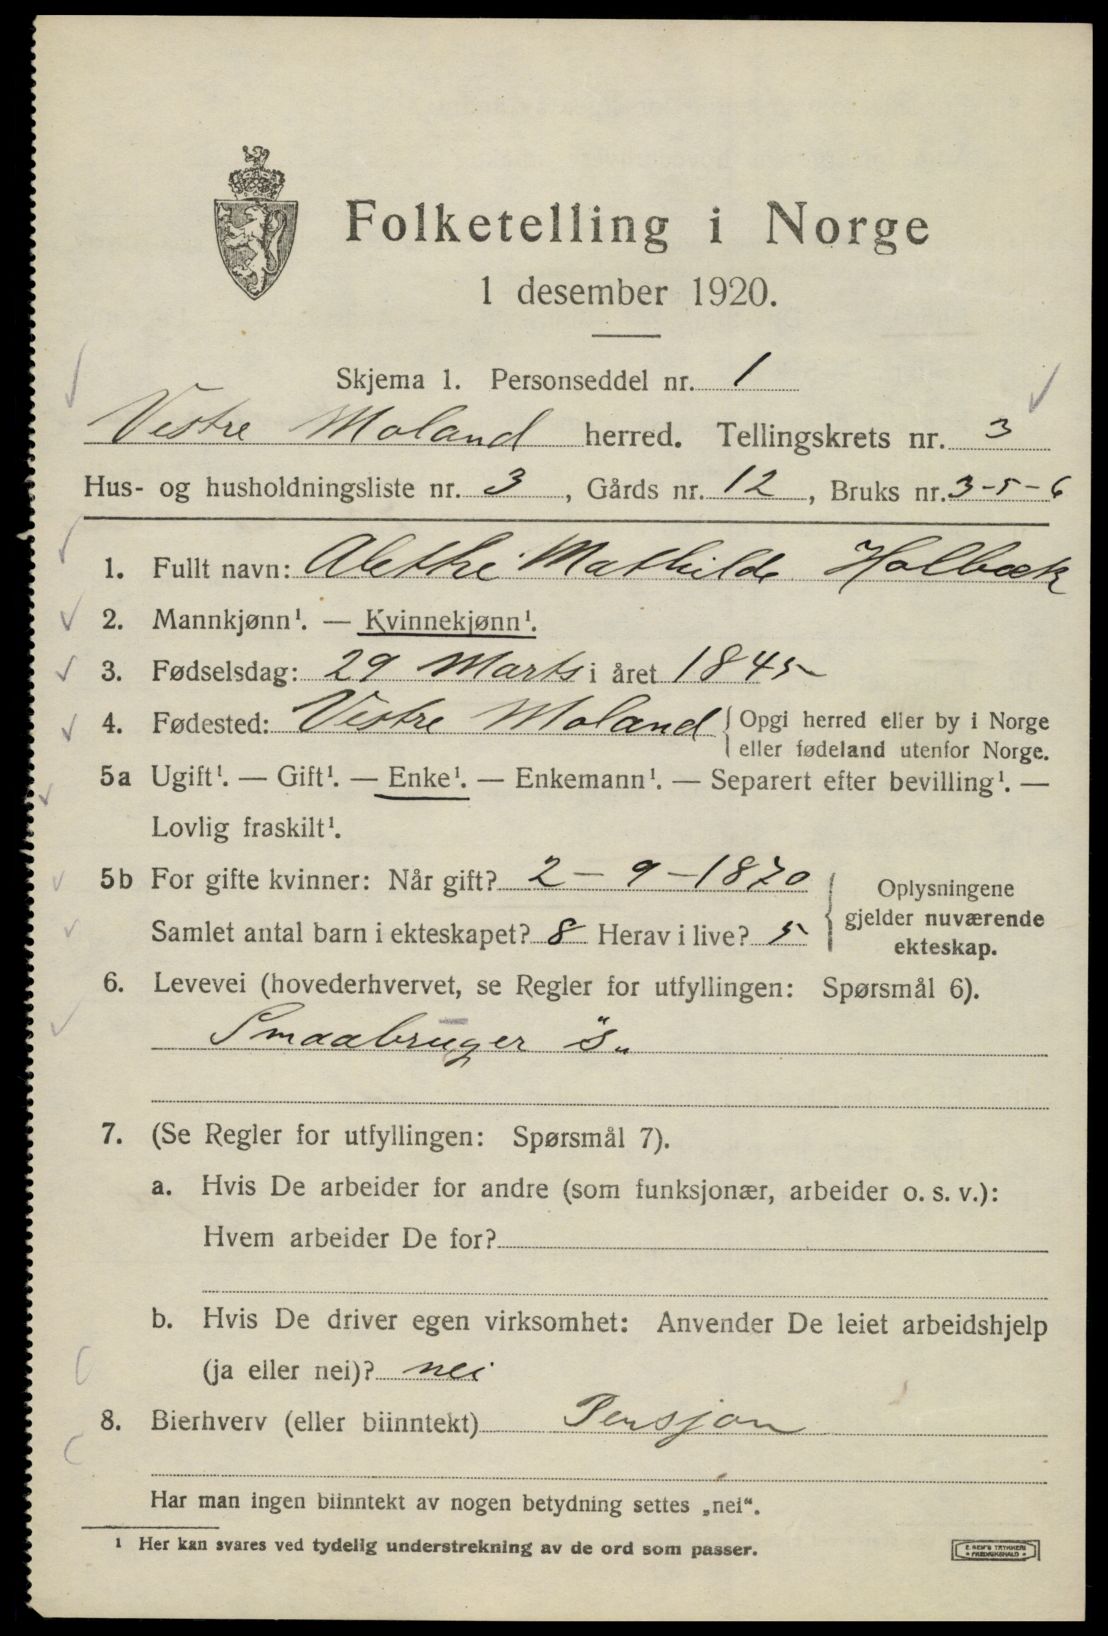 Folketelling i Norge
1 desember 1920.
Skjema 1. Personseddel nr. 1
Vestre Moland herred. Tellingskrets nr. 3
Hus- og husholdningsliste nr. 3, Gårds nr. 12, Bruks nr. 3-5-6
1. Fullt navn: Alethe Mathilde Holbæk
2. Mannkjønn¹. — Kvinnekjønn¹.
3. Fødselsdag: 29 Marts i året 1845
4. Fødested: Vestre Moland { Opgi herred eller by i Norge
eller fødeland utenfor Norge.
5a Ugift¹. — Gift¹. — Enke¹. — Enkemann¹. — Separert efter bevilling¹. —
Lovlig fraskilt¹.
5b For gifte kvinner: Når gift? 2-9-1870
Samlet antal barn i ekteskapet? 8 Herav i live? 5
Oplysningene
gjelder nuværende
ekteskap.
6. Levevei (hovederhvervet, se Regler for utfyllingen: Spørsmål 6).
Smaabruger "s„
7. (Se Regler for utfyllingen: Spørsmål 7).
a. Hvis De arbeider for andre (som funksjonær, arbeider o. s. v.):
Hvem arbeider De for?
b. Hvis De driver egen virksomhet: Anvender De leiet arbeidshjelp
(ja eller nei)? nei
8. Bierhverv (eller biinntekt) Pensjon
Har man ingen biinntekt av nogen betydning settes „nei“.
¹ Her kan svares ved tydelig understrekning av de ord som passer.